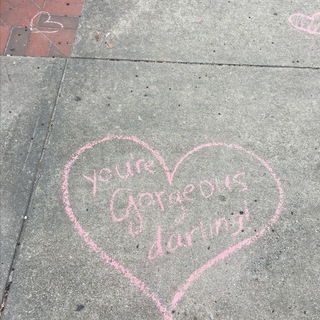 you're
Gorgeous
darling!